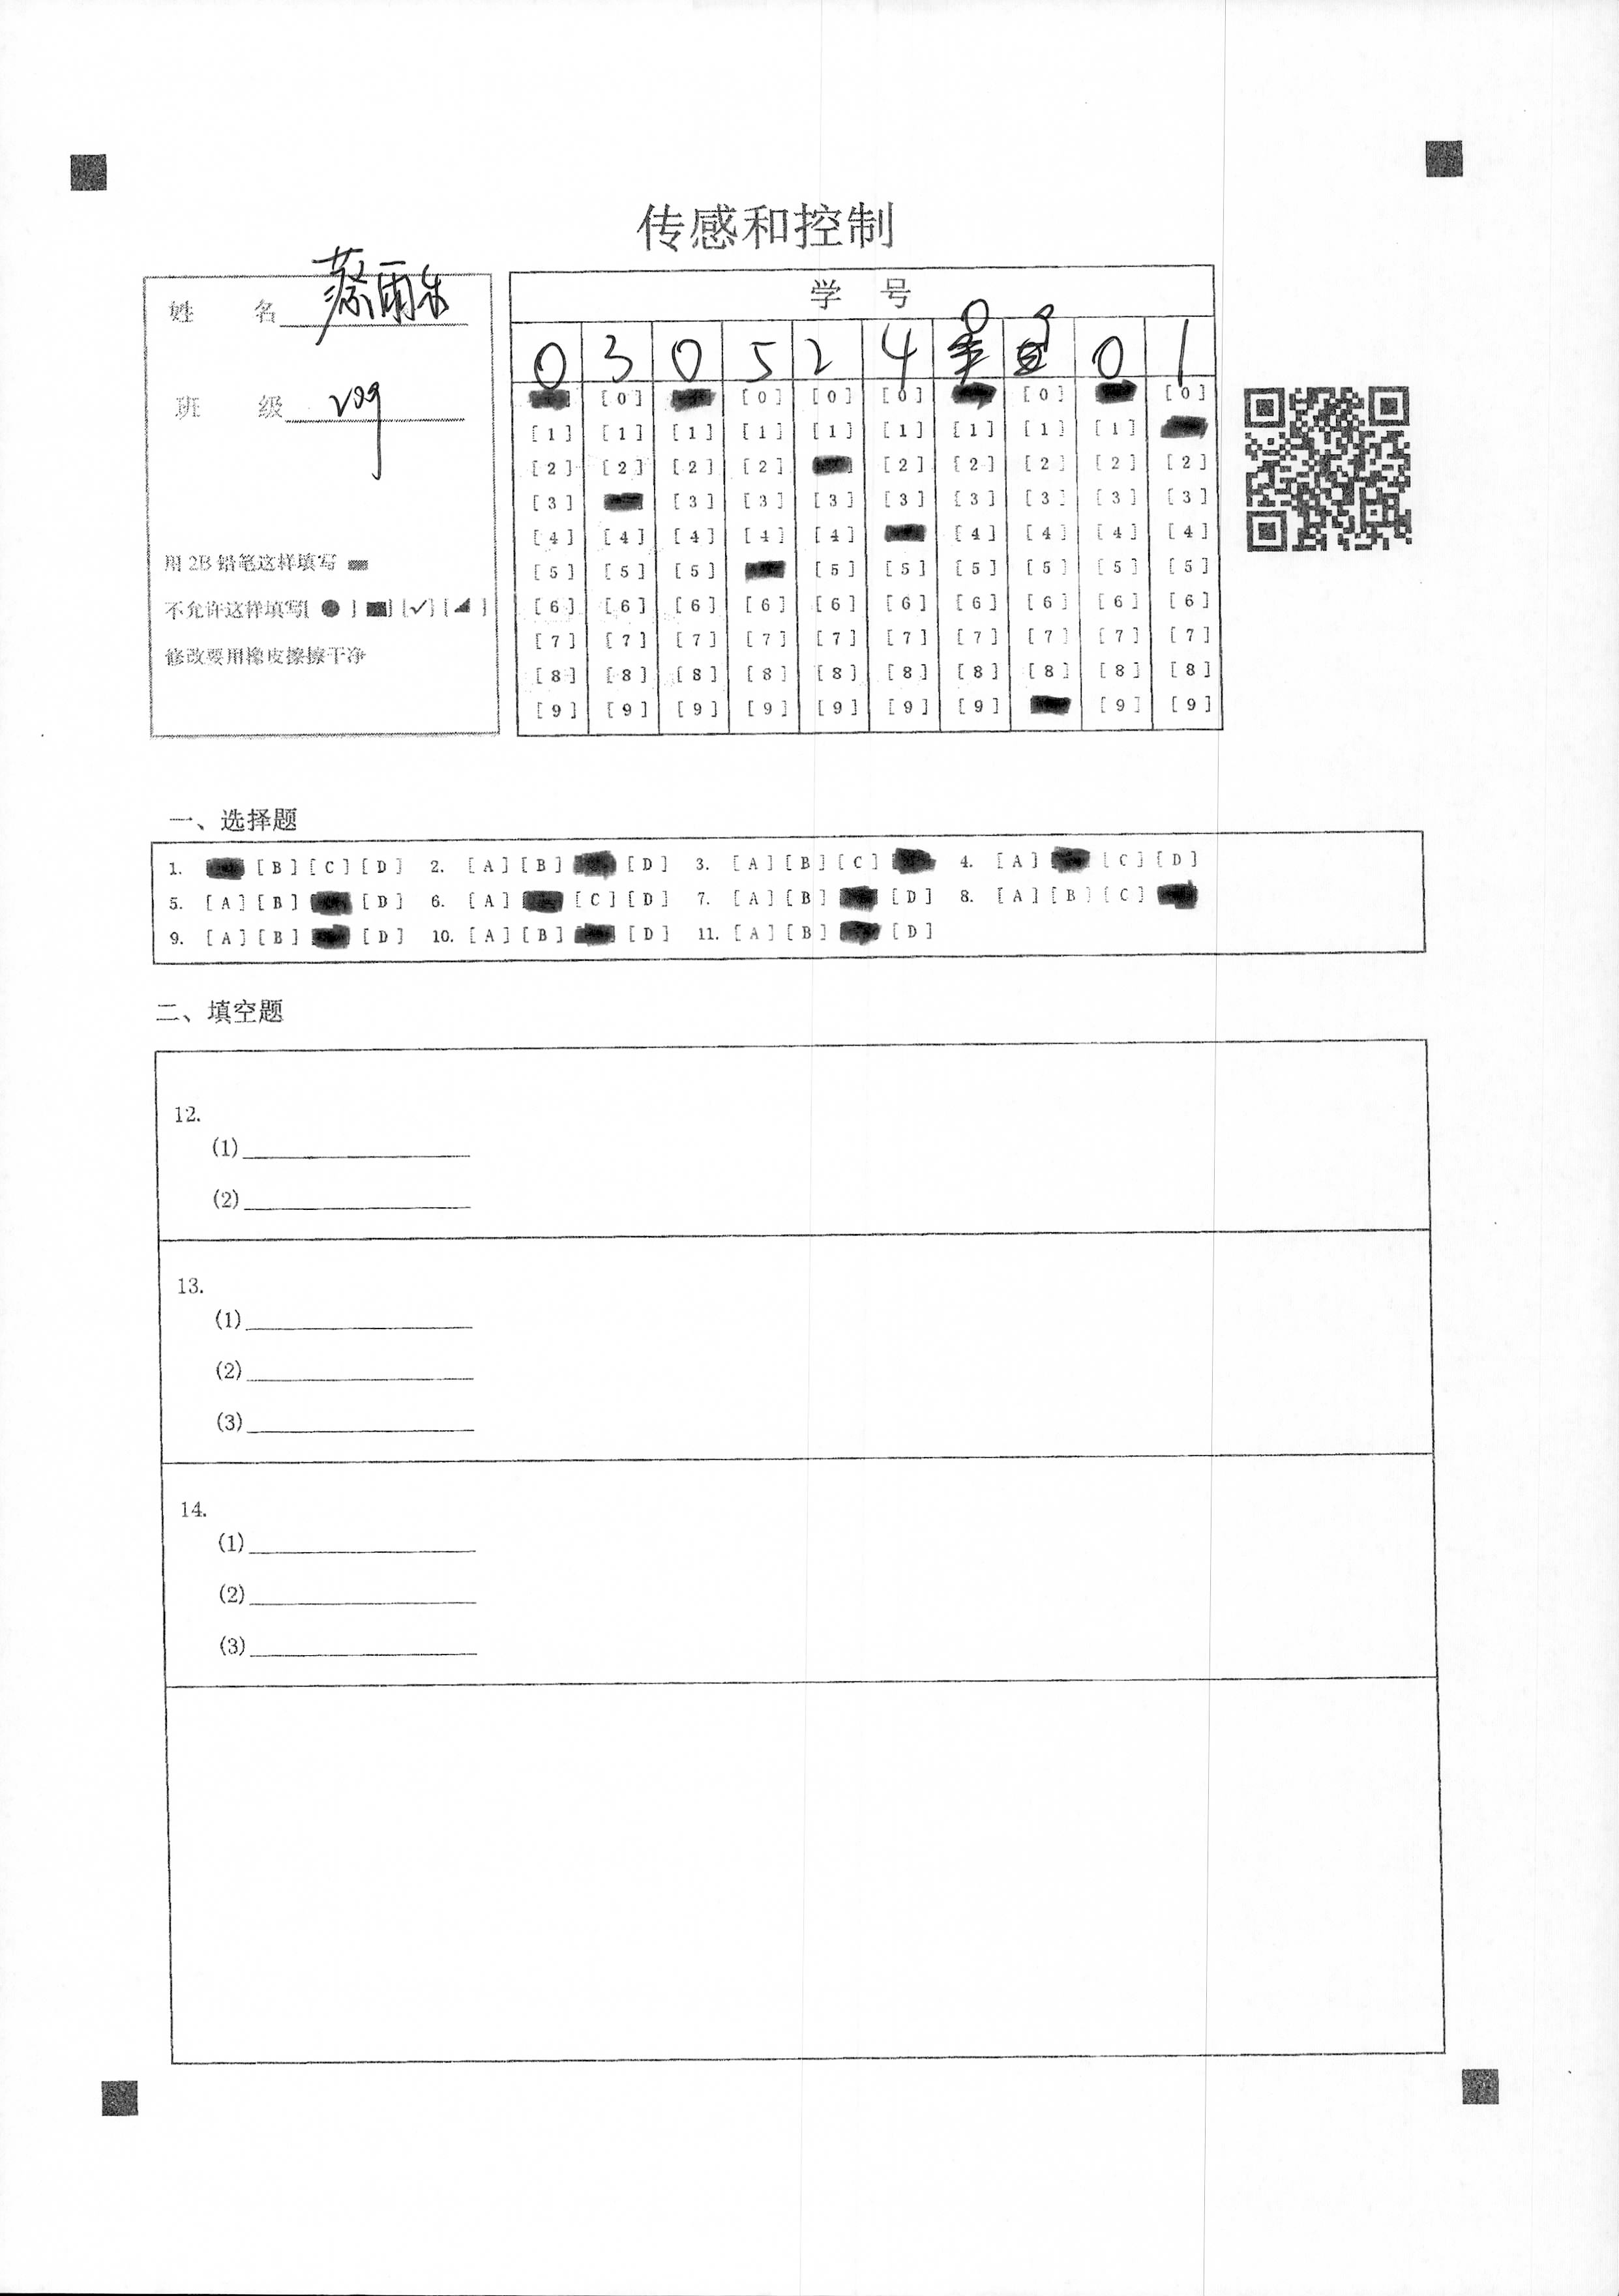 传感和控制
姓 名 蔡雨
班 级 209
用 2B 铅笔这样填写
不允许这样填写[ ● ] [■] [✓] [◢ ]
修改要用橡皮擦擦干净
学 号
0 9
0 3 0 5 2 4 0 1
[0] [0] [0] [0] [0] [0]
[1] [1] [1] [1] [1] [1] [1] [1] [1]
[2] [2] [2] [2] [2] [2] [2] [2] [2]
[3] [3] [3] [3] [3] [3] [3] [3] [3]
[4] [4] [4] [4] [4] [4] [4] [4] [4]
[5] [5] [5] [5] [5] [5] [5] [5] [5]
[6] [6] [6] [6] [6] [6] [6] [6] [6] [6]
[7] [7] [7] [7] [7] [7] [7] [7] [7] [7]
[8] [8] [8] [8] [8] [8] [8] [8] [8] [8]
[9] [9] [9] [9] [9] [9] [9] [9] [9]
一、选择题
1. [B] [C] [D] 2. [A] [B] [D] 3. [A] [B] [C] 4. [A] [C] [D]
5. [A] [B] [D] 6. [A] [C] [D] 7. [A] [B] [D] 8. [A] [B] [C]
9. [A] [B] [D] 10. [A] [B] [D] 11. [A] [B] [D]
二、填空题
12.
(1)
(2)
13.
(1)
(2)
(3)
14.
(1)
(2)
(3)